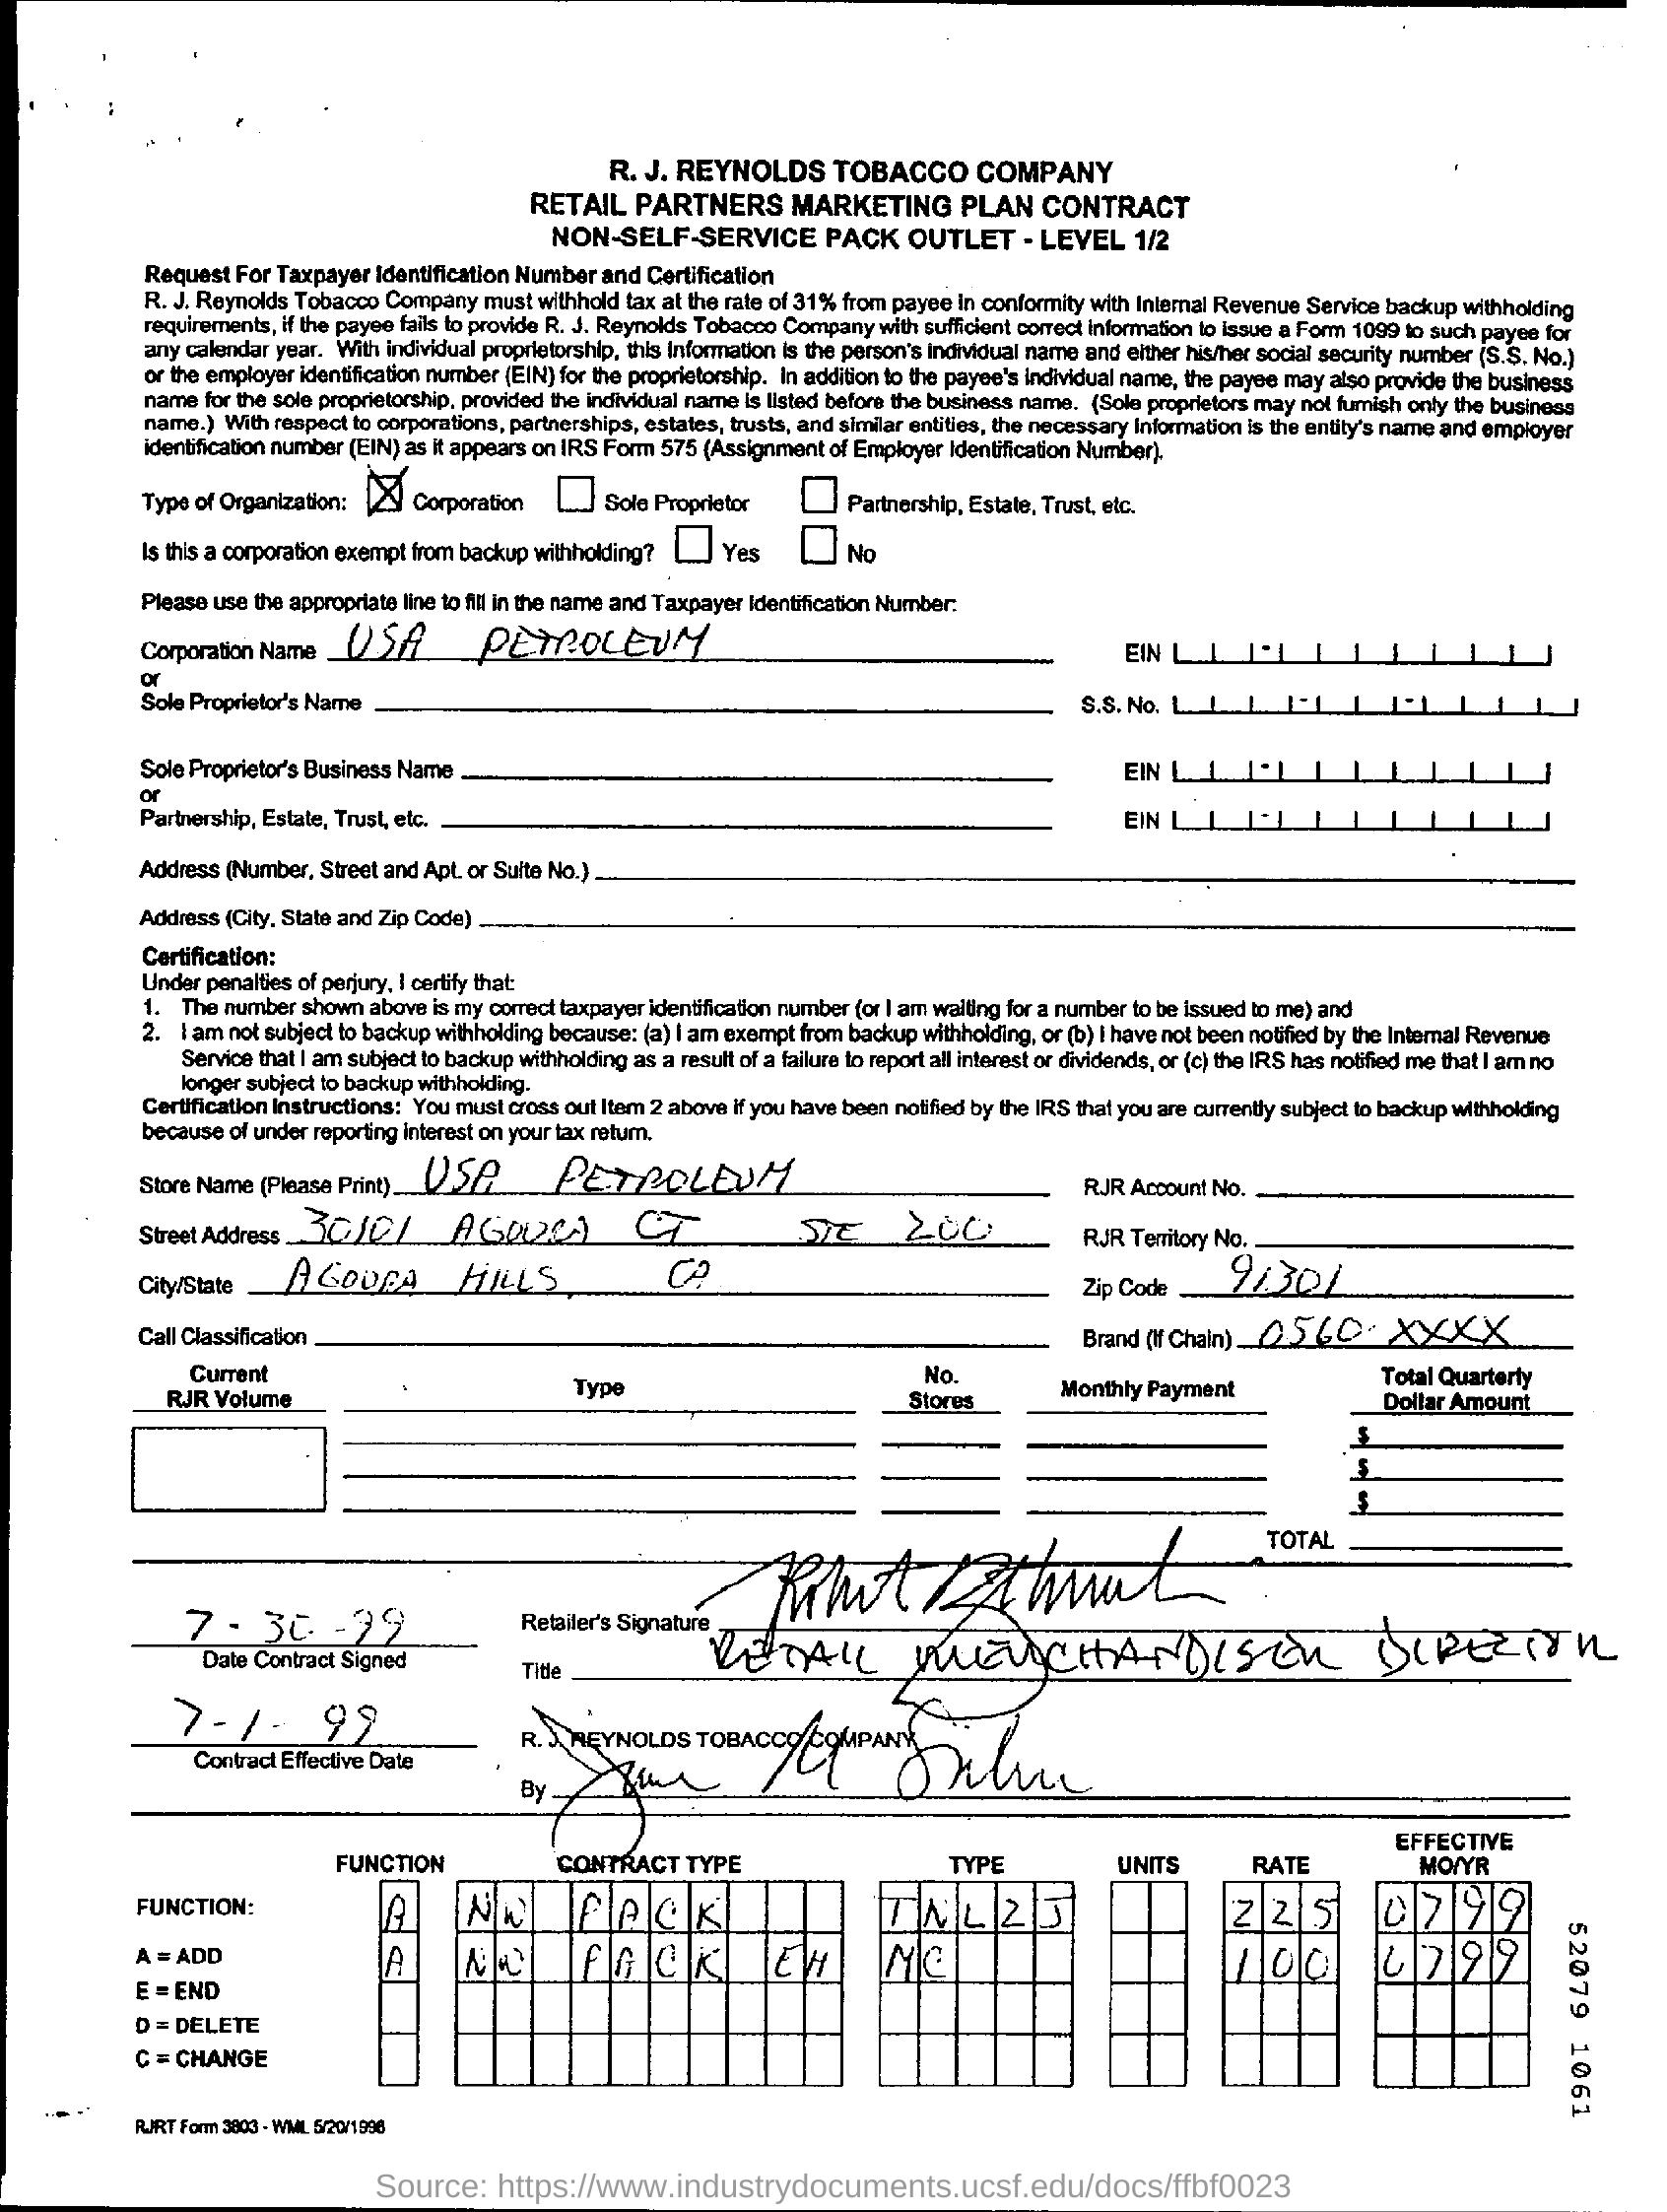 R. J. REYNOLDS TOBACCO COMPANY
RETAIL PARTNERS MARKETING PLAN CONTRACT
NON-SELF-SERVICE PACK OUTLET - LEVEL 1/2
Request For Taxpayer Identification Number and Certification
R. J. Reynolds Tobacco Company must withhold tax at the rate of 31% from payee in conformity with Internal Revenue Service backup withholding
requirements, if the payee fails to provide R. J. Reynolds Tobacco Company with sufficient correct information to issue a Form 1099 to such payee for
any calendar year. With individual proprietorship, this information is the person's individual name and either his/her social security number (S.S. No.)
or the employer identification number (EIN) for the proprietorship. In addition to the payee's individual name, the payee may also provide the business
name for the sole proprietorship, provided the individual name is listed before the business name. (Sole proprietors may not furnish only the business
name.) With respect to corporations, partnerships, estates, trusts, and similar entities, the necessary information is the entity's name and employer
identification number (EIN) as it appears on IRS Form 575 (Assignment of Employer Identification Number).
Type of Organization: Corporation Sole Proprietor Partnership, Estate, Trust, etc.
Is this a corporation exempt from backup withholding? Yes No
Please use the appropriate line to fill in the name and Taxpayer Identification Number:
Corporation Name USA PETROLEUM EIN
or
Sole Proprietor's Name S.S. No.
Sole Proprietor's Business Name EIN
or
Partnership, Estate, Trust, etc. EIN
Address (Number, Street and Apt. or Suite No.)
Address (City, State and Zip Code)
Certification:
Under penalties of perjury, I certify that:
1. The number shown above is my correct taxpayer identification number (or I am waiting for a number to be issued to me) and
2. I am not subject to backup withholding because: (a) I am exempt from backup withholding, or (b) I have not been notified by the Internal Revenue
Service that I am subject to backup withholding as a result of a failure to report all interest or dividends, or (c) the IRS has notified me that I am no
longer subject to backup withholding.
Certification Instructions: You must cross out Item 2 above if you have been notified by the IRS that you are currently subject to backup withholding
because of under reporting interest on your tax return.
Store Name (Please Print) USA PETROLEUM RJR Account No.
Street Address 30101 AGOURA CT STE 200 RJR Territory No.
City/State AGOURA HILLS, CA Zip Code 91301
Call Classification Brand (If Chain) 0560-XXXX
Current RJR Volume Type No. Stores Monthly Payment Total Quarterly Dollar Amount
$
$
$
TOTAL
7-30-99 Retailer's Signature Robert
Date Contract Signed Title RETAIL MERCHANDISER DIRECTOR
7-1-99 R. J. REYNOLDS TOBACCO COMPANY
Contract Effective Date By
FUNCTION CONTRACT TYPE TYPE UNITS RATE EFFECTIVE MO/YR
FUNCTION: A NW PACK TNL2J 225 0799
A = ADD A NW PACK EH MC 100 0799
E = END
D = DELETE
C = CHANGE
52079 1061
RJRT Form 3803 - WML 5/20/1996
Source: https://www.industrydocuments.ucsf.edu/docs/ffbf0023